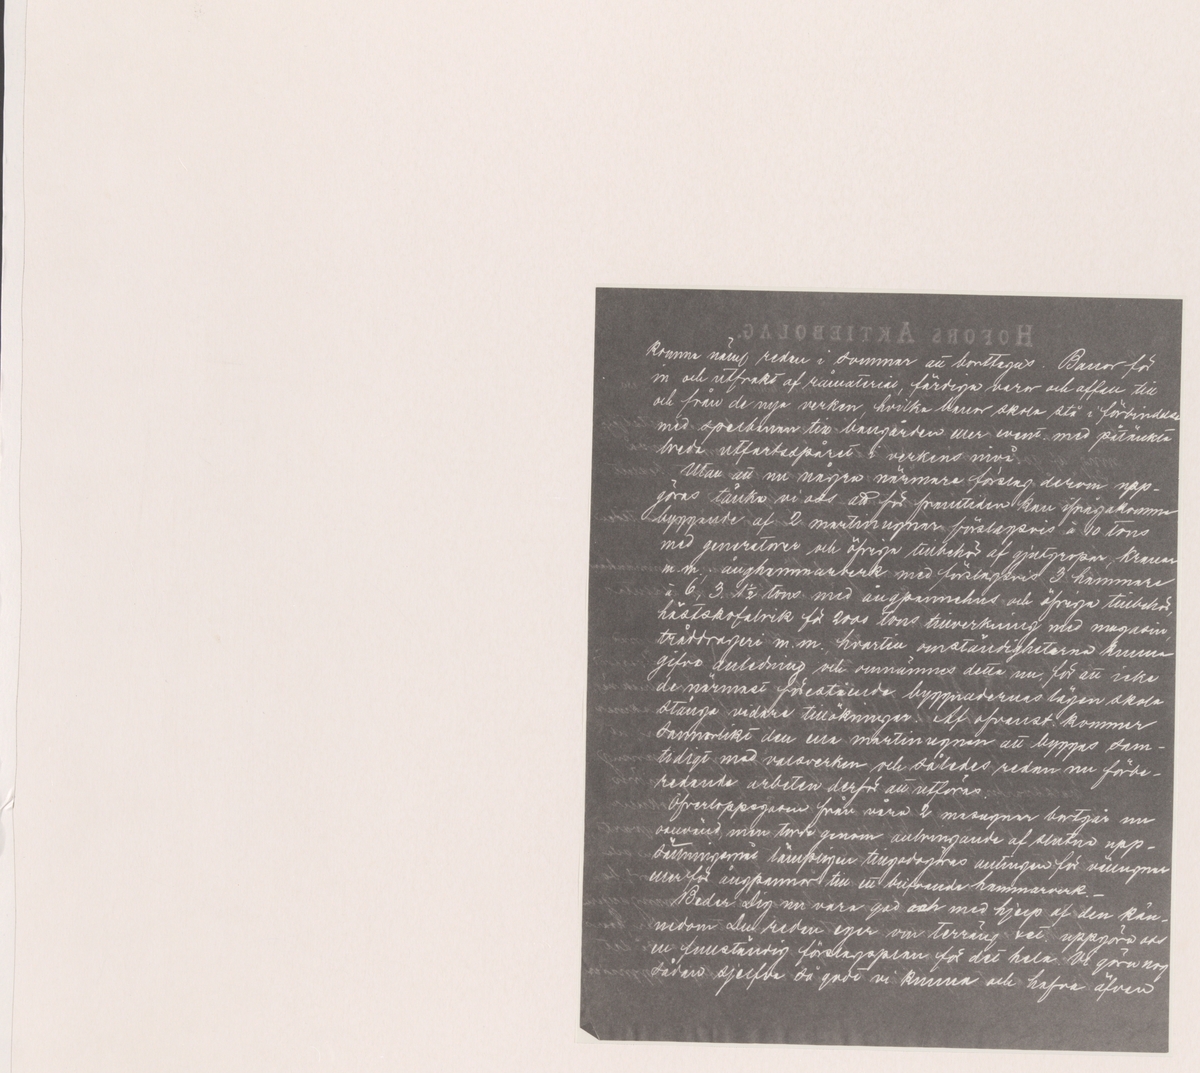 HOFORS AKTIEBOLAG.
kunna nämi redan i sommar att borttagas. Banor för
in och utfrakt af råmaterial, färdiga varor och affall till
och från de nya verken, hvilka banor skola stå i förbindelse
med sparbanan till bangården eller event. med påtänkta
breda utfartsspåret i verkens nivå.
Utan att nu några närmare förslag derom upp-
göras tänka vi oss att för framtiden kan ifrågakomma
byggande af 2 martinugnar förslagsvis à 10 tons
med generatorer och öfriga tillbehör af gjutgropar, kranar
m.m., ånghammarverk med förslagsvis 3 hammare
à 6, 3, 1½ tons med ångpannehus och öfriga tillbehör
hästskofabrik för 2000 tons tillverkning med magasin,
tråddrageri m.m. hvartill omständigheterna kunna
gifva anledning och omnämnes detta nu, för att icke
de närmast förestående byggnadernas lägen skola
stänga vidare tillökningar. Af ofvanst. kommer
sannolikt den ena martinugnen att byggas sam-
tidigt med valsverken och således redan nu förbe-
redande arbeten derför att utföras.
Öfverloppsgasen från våra 2 masugnar bortgår nu
oanvänd men torde genom anbringande af slutna upp-
sättningsmål lämpligen tillgodogöras antingen för vällugnar
eller för ångpannor till ett blifvande hammarverk.—
Beder Dig nu vara god och med hjelp af den kän-
nedom Du redan eger om terräng etc. uppgöra oss
en fullständig förslagsplan för det hela. Vi göra nog
sådan sjelfva så godt vi kunna och hafva äfven